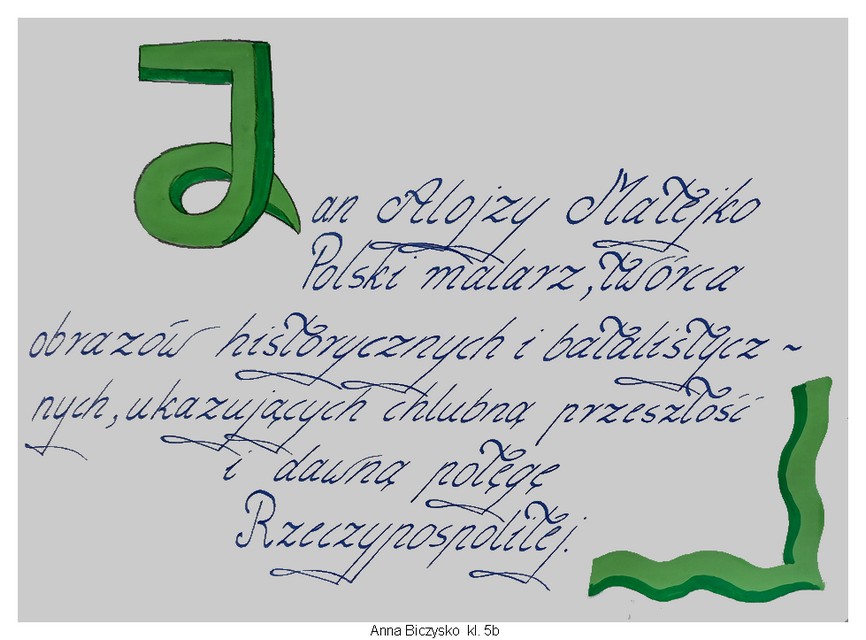 Jan Alojzy Matejko
Polski malarz, twórca
obrazów historycznych i batalistycz~
nych, ukazujących chlubną przeszłość
i dawną potęgę
Rzeczypospolitej.
Anna Biczysko kl. 5b